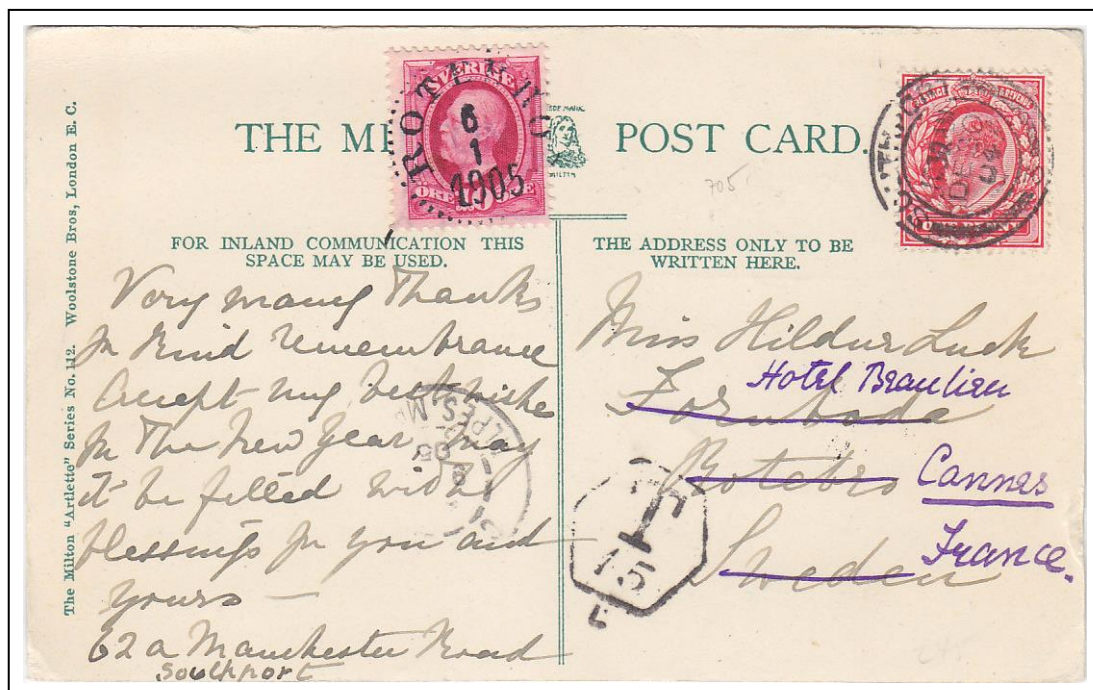 The Milton "Artlette" Series No. 12. Woolstone Bros, London E. C.
THE MI POST CARD.
SVERIGE
ROTEBRO
6
1
1905
FOR INLAND COMMUNICATION THIS
SPACE MAY BE USED.
Very many Thanks
for Kind remembrance
Accept my best wishes
for The New Year may
it be filled with
blessings for you and
yours —
62a Manchester Road
Southport
THE ADDRESS ONLY TO BE
WRITTEN HERE.
705
Miss Hildur Luck
Hotel Beaulieu
Fornboda
Rotebro Cannes
Sweden France.
T
15